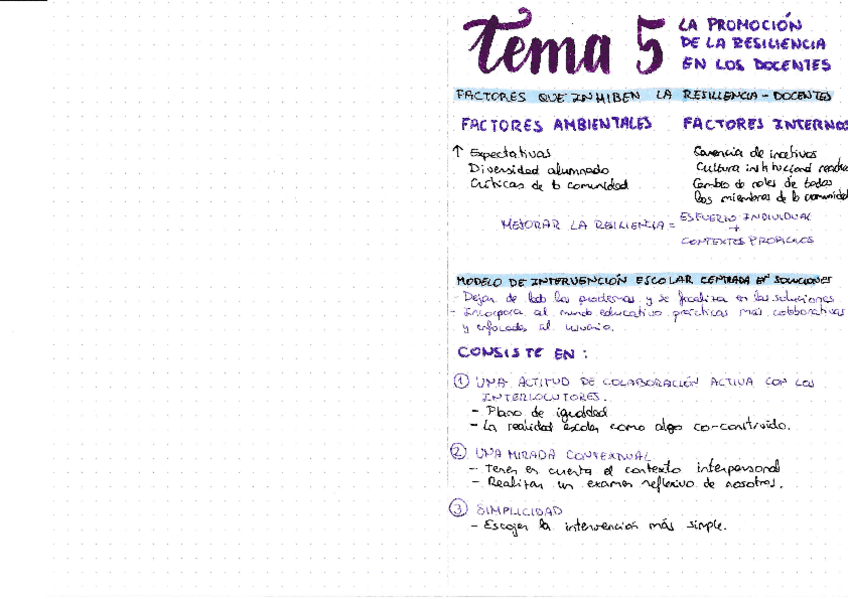 Tema 5
LA PROMOCIÓN
DE LA RESILIENCIA
EN LOS DOCENTES
FACTORES QUE INHIBEN LA RESILIENCIA - DOCENTES
FACTORES AMBIENTALES
↑ Expectativas
Diversidad alumnado
Críticas de la comunidad
FACTORES INTERNOS
Carencia de incetivos
Cultura institucional
Cambio de roles de todos
los miembros de la comunidad
MEJORAR LA RESILIENCIA = ESFUERZO INDIVIDUAL
+
CONTEXTOS PROPICIOS
MODELO DE INTERVENCIÓN ESCOLAR CENTRADA EN SOLUCIONES
- Dejan de lado los problemas y se focaliza en las soluciones
- Incorpora al mundo educativo prácticas más colaborativas
y enfocadas al usuario.
CONSISTE EN :
① UNA ACTITUD DE COLABORACIÓN ACTIVA CON LOS
INTERLOCUTORES.
- Plano de igualdad
- La realidad escolar como algo co-construido.
② UNA MIRADA CONTEXTUAL
- Tener en cuenta el contexto interpersonal
- Realizar un examen reflexivo de nosotros.
③ SIMPLICIDAD
- Escoger la intervención más simple.